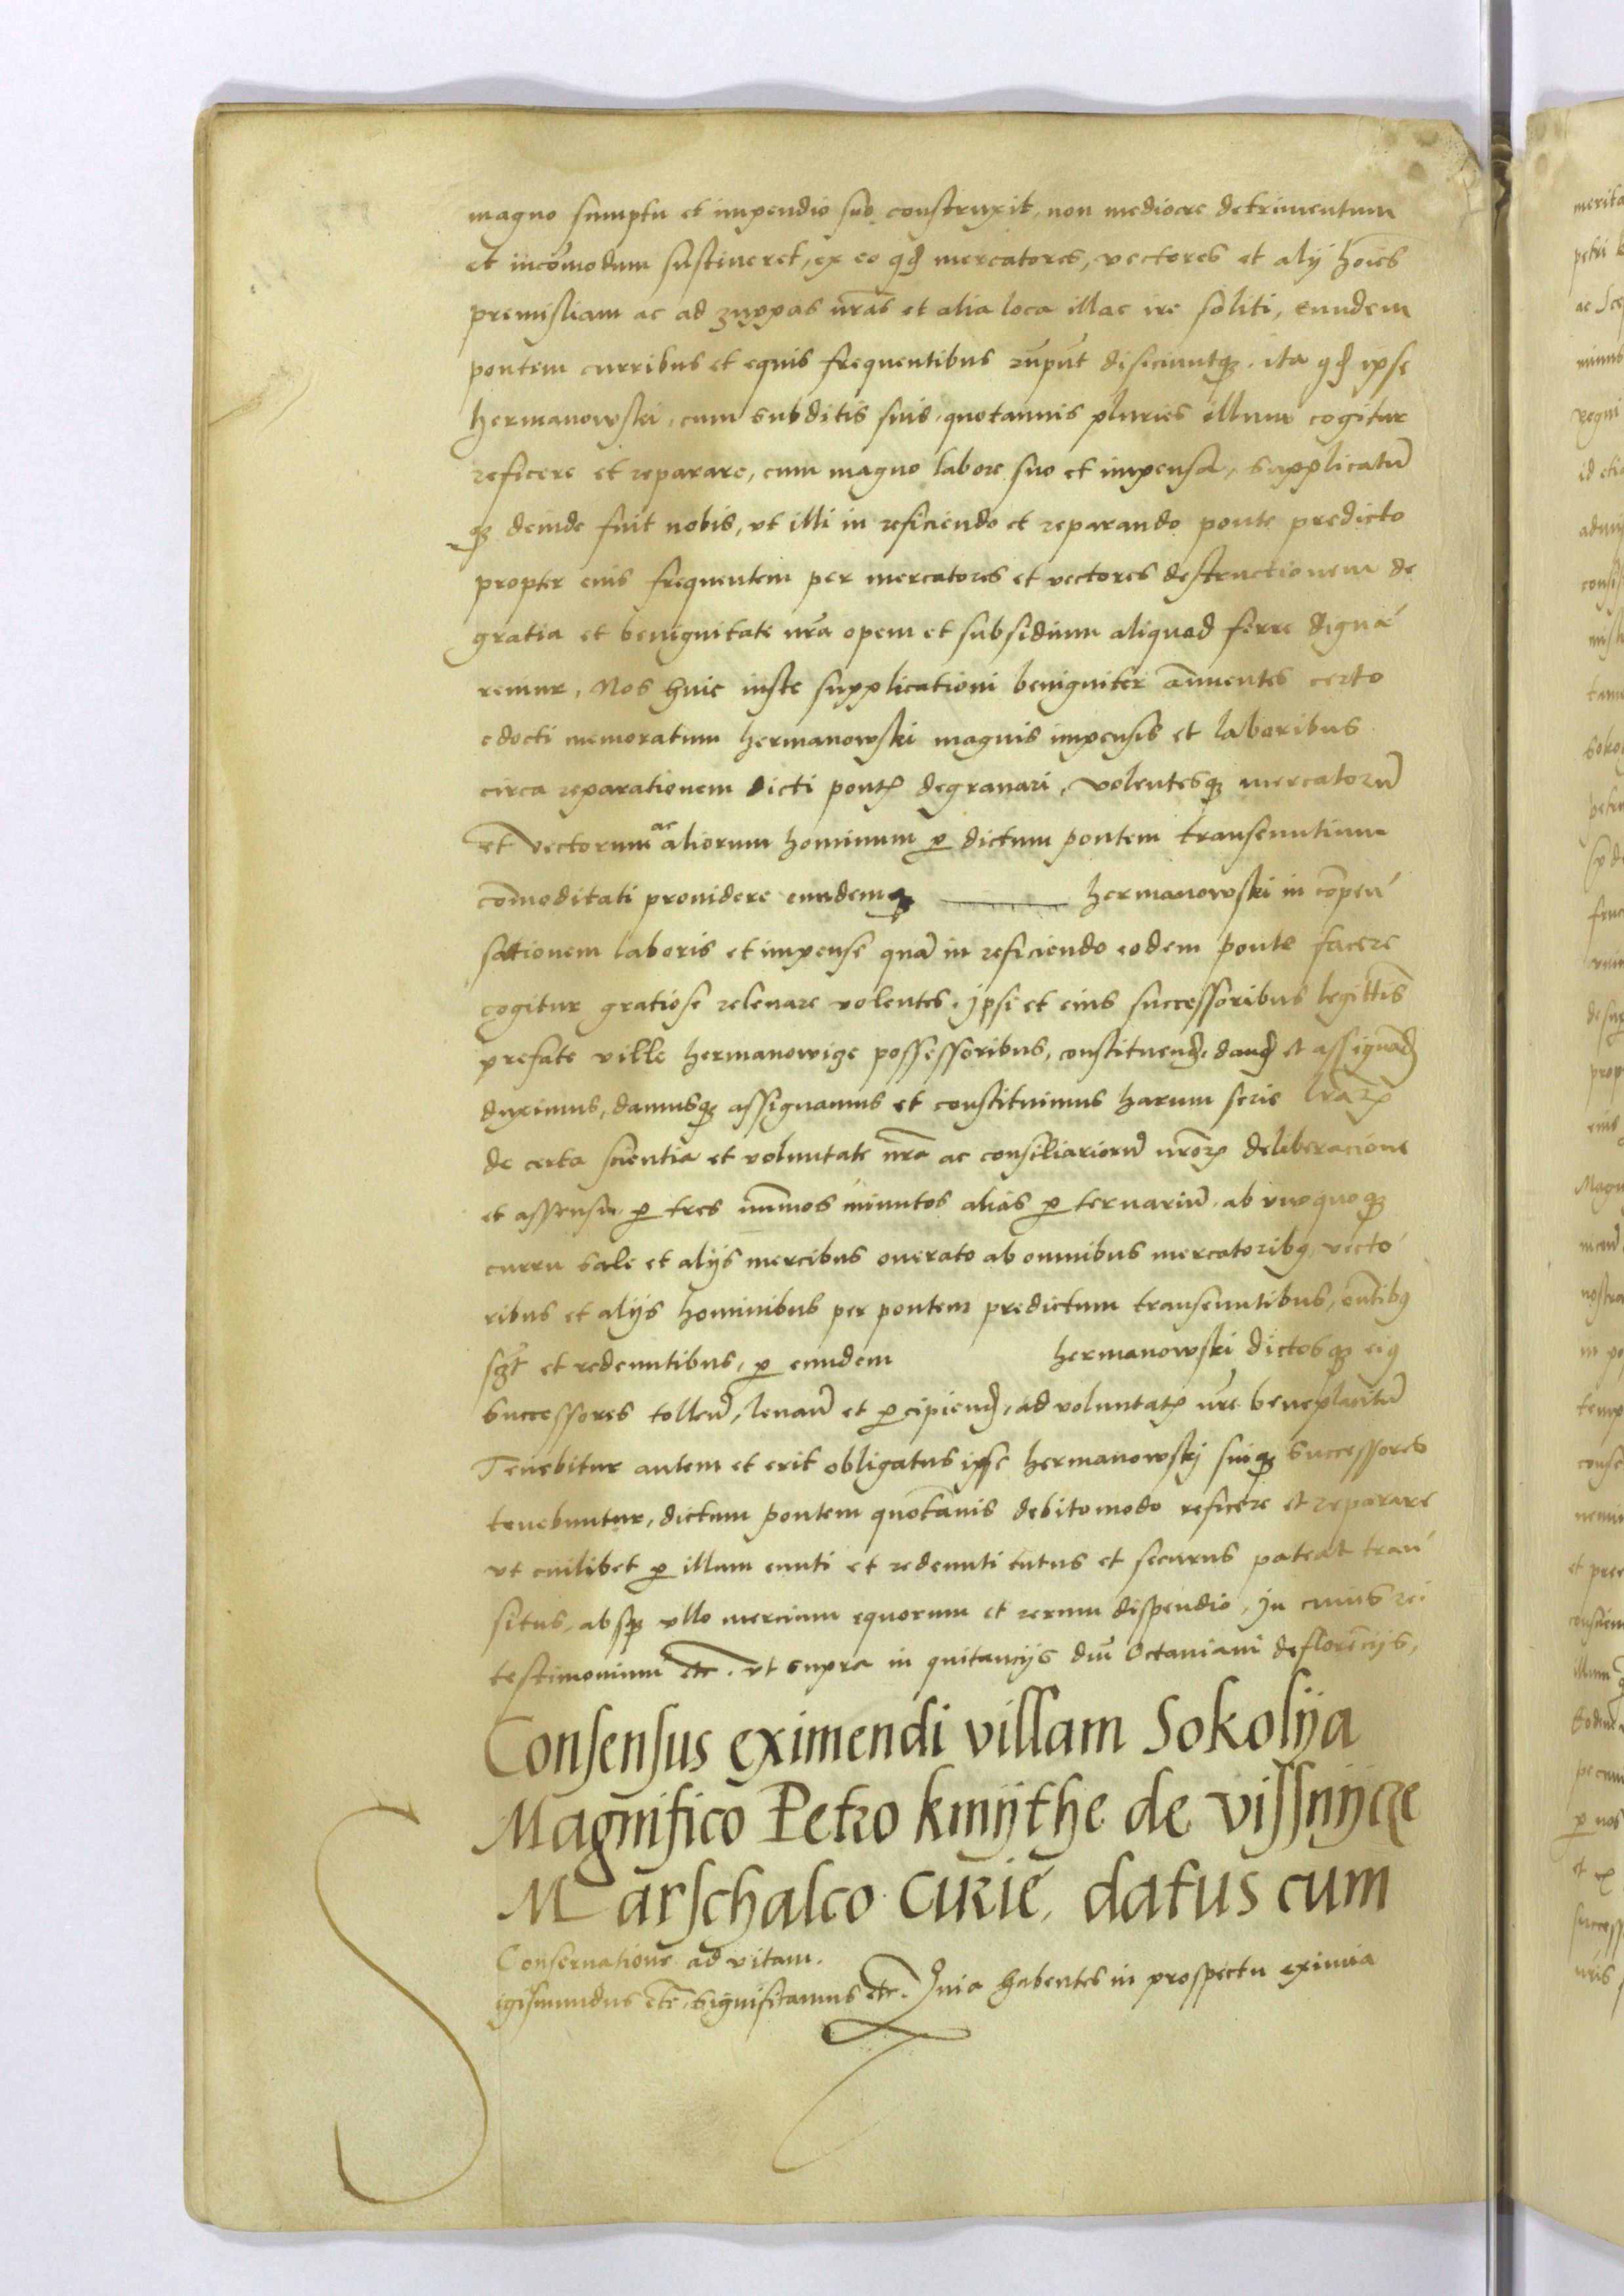 magno sumptu et impendio suo construxit, non mediocre detrimentum
et incōmodum sustineret, ex eo qđ mercatores, vectores et alij hoīes
premisliam ac ad zuppas nr̄as et alia loca illac ire soliti, eundem
pontem curribus et equis frequentibus rūpūt disiciuntqȝ. ita qđ ipse
hermanowski, cum subditis suis quotannis pluries illum cogitur
reficere et reparare, cum magno labore suo et impensa, supplicatū
qȝ deinde fuit nobis, vt illi in reficiendo et reparando ponte predicto
propter eius frequentem per mercatores et vectores destructionem de
gratia et benignitate nr̄a opem et subsidium aliquod ferre digna
remur, Nos huic iuste supplicationi benigniter ānuentes certo
edocti memoratum hermanowski magnis impensis et laboribus
circa reparationem dicti pontꝭ degrauari, volentesqȝ mercatorū
et vectorum ac aliorum hominum ꝑ dictum pontem transeuntium
cōmoditati prouidere eundemqȝ hermanowski in cōpen
sationem laboris et impense quā in reficiendo eodem ponte facere
cogitur gratiose releuare volentes. ipsi et eius successoribus legittīs
prefate ville hermanowize possessoribus, constituenđ, danđ et assignanđ
duximus, damusqȝ assignamus et constituimus harum serie lr̄arꝝ
de certa scientia et voluntate nr̄a ac consiliariorū nr̄orꝝ deliberacione
et assensu ꝑ tres nūmos minutos alias ꝑ ternariū. ab vnoquoqȝ
curru sale et alijs mercibus onerato ab omnibus mercatoribꝰ, vecto
ribus et alijs hominibus per pontem predictum transeuntibus, eūtibꝰ
sꝫt et redeuntibus, ꝑ eundem hermanowski dictosqȝ eiꝰ
successores tollenđ, leuanđ et ꝑcipienđ, ad voluntatꝭ nr̄e beneplacitū
Tenebitur autem et erit obligatus ipse hermanowskj suiqȝ successores
tenebuntur, dictum pontem quotānis debitomodo reficere et reparare
vt cuilibet ꝑ illum eunti et redeunti tutus et securus pateat tran
situs, absqȝ vllo mercium equorum et rerum dispendio, In cuius rei
testimonium etc. vt supra in quitancijs dn̄i Octauiani de florēcijs,
Consensus eximendi villam Sokolija
Magnifico Petro kmijthe de vissnijcze
Marschalco curie, datus cum
Conseruatione ad vitam.
Sigismundus etc. significamus etc. Quia habentes in prospectu eximia